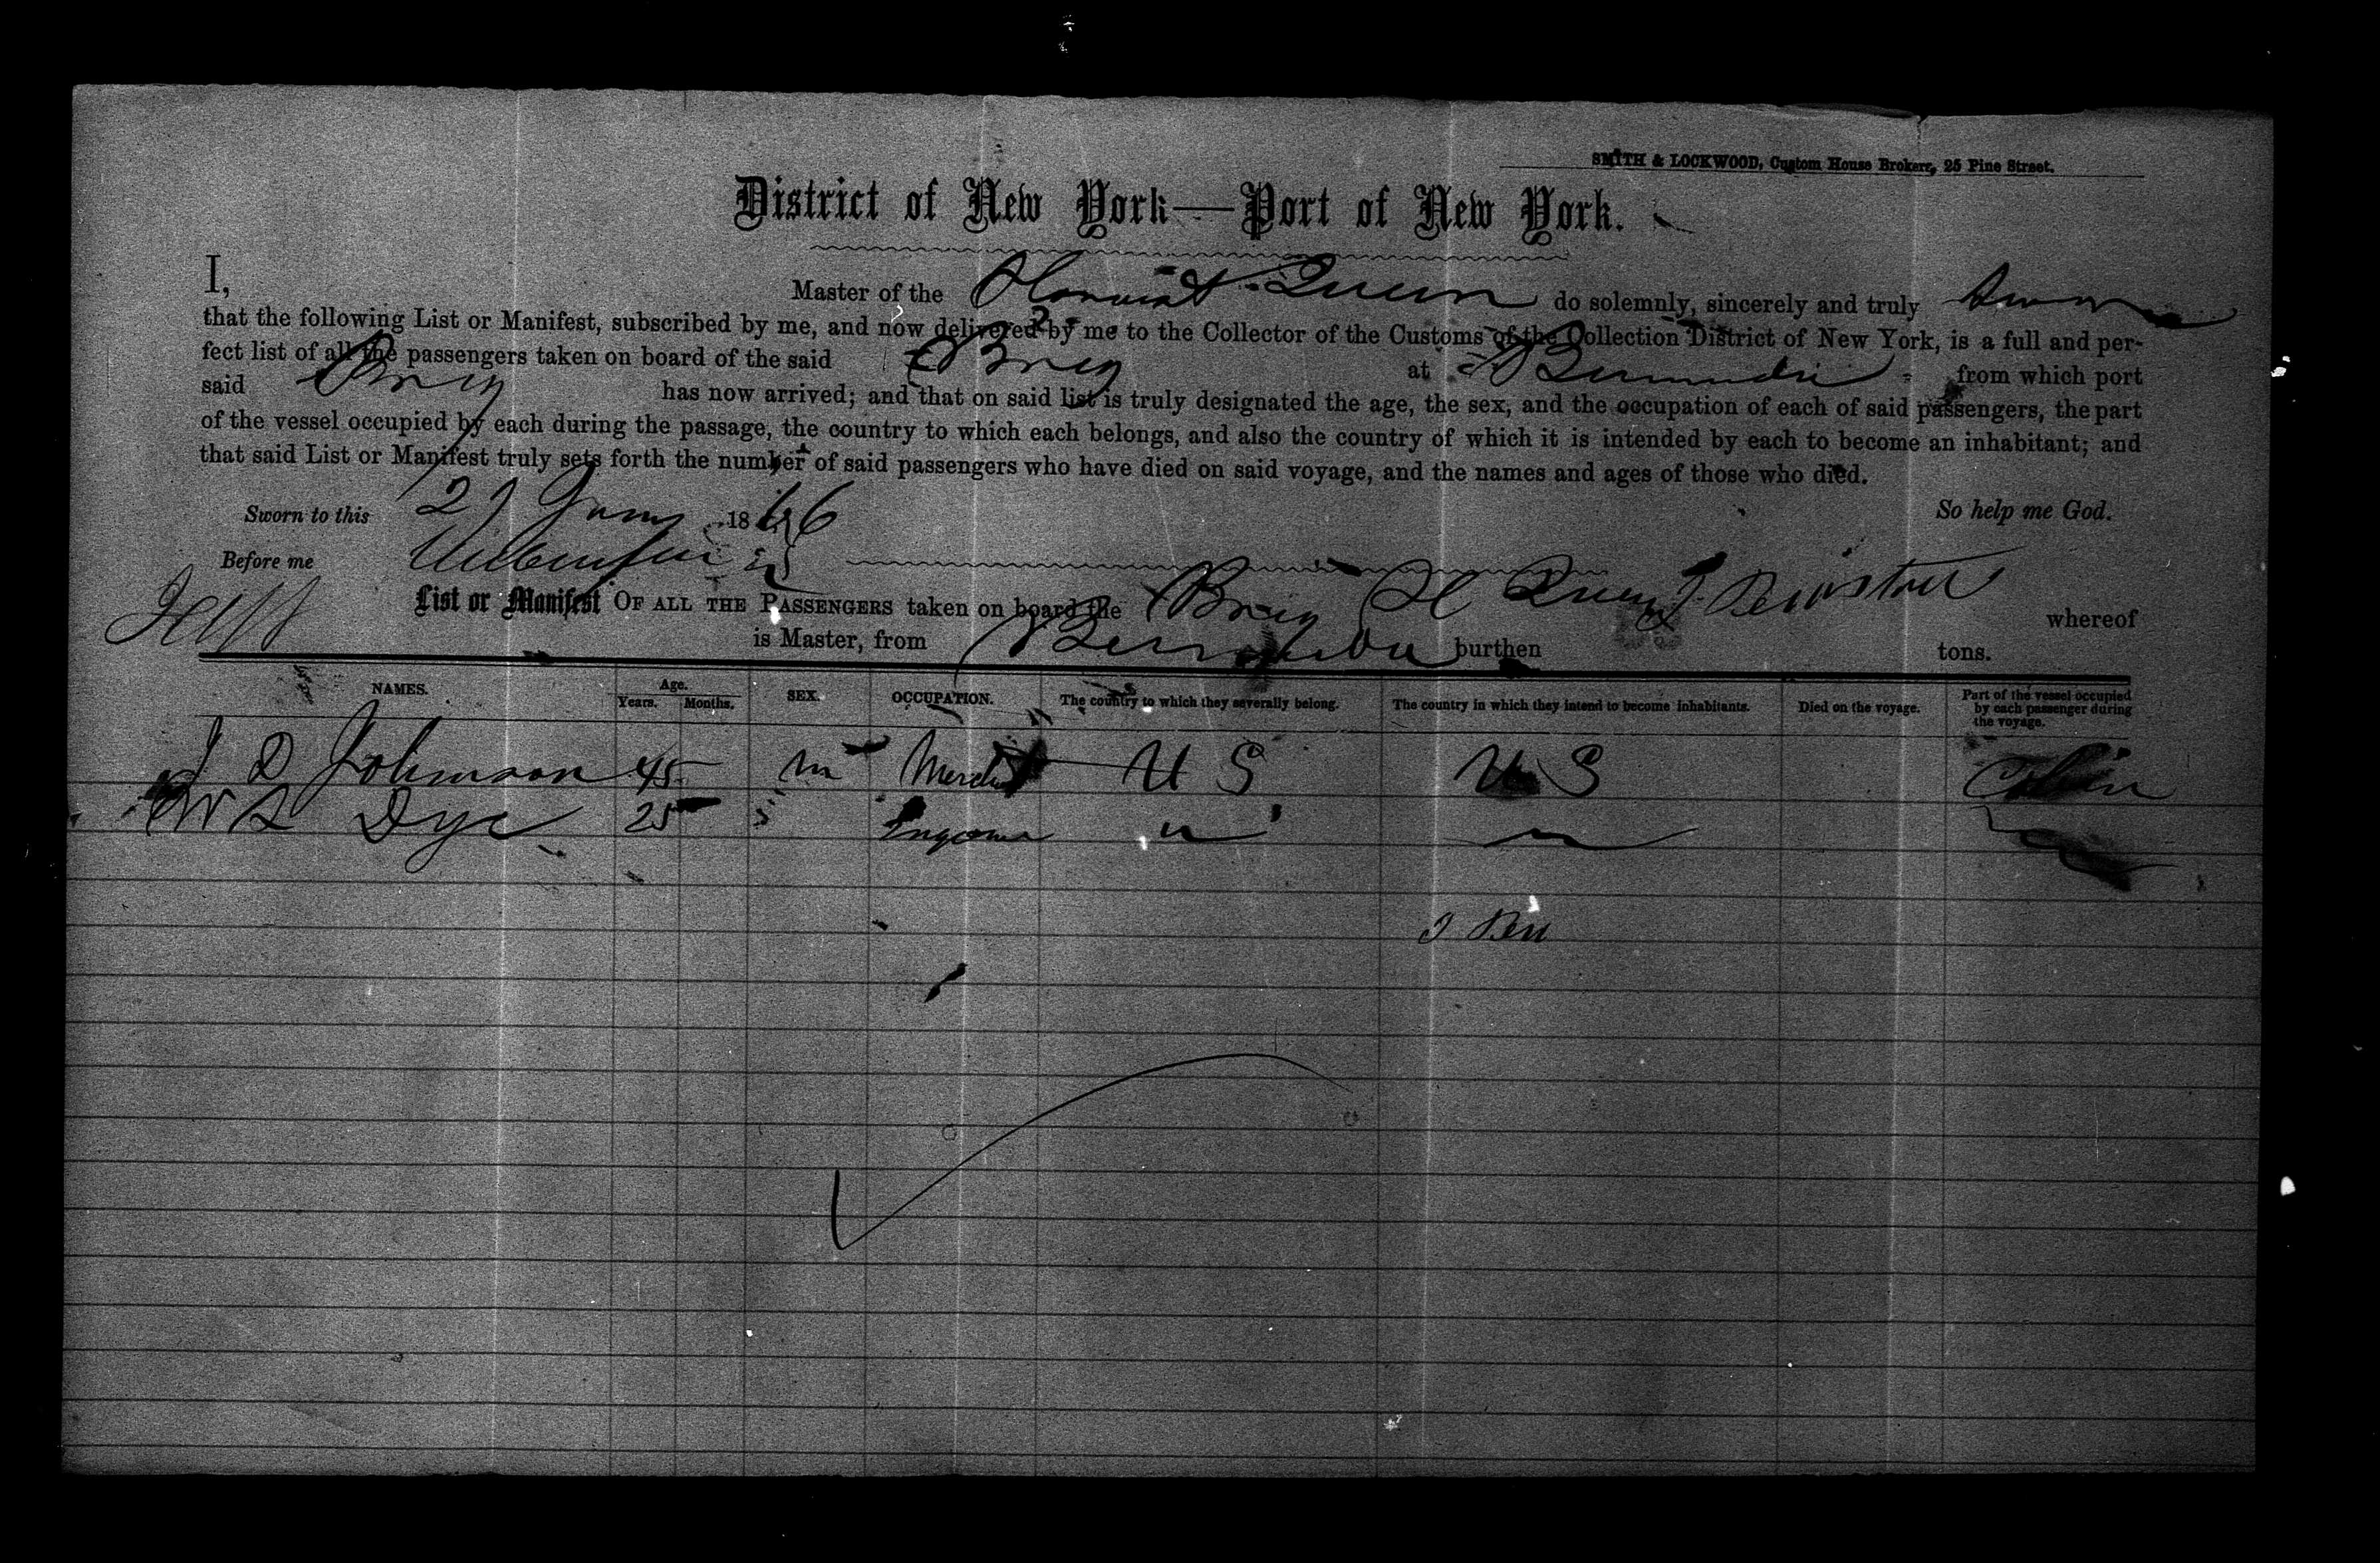 SMITH & LOCKWOOD, Custom House Brokers, 25 Pine Street.
District of New York—Port of New York.
I, Master of the Harvest Queen do solemnly, sincerely and truly swear
that the following List or Manifest, subscribed by me, and now delivered by me to the Collector of the Customs of the Collection District of New York, is a full and per-
fect list of all the passengers taken on board of the said Brig at Bermuda from which port
said Brig has now arrived; and that on said list is truly designated the age, the sex, and the occupation of each of said passengers, the part
of the vessel occupied by each during the passage, the country to which each belongs, and also the country of which it is intended by each to become an inhabitant; and
that said List or Manifest truly sets forth the number of said passengers who have died on said voyage, and the names and ages of those who died.
Sworn to this 27 1866 So help me God.
Before me
List or Manifest OF ALL THE PASSENGERS taken on board the Brig H Queen whereof
is Master, from Bermuda burthen tons.
NAMES. Age. Years. Months. SEX. OCCUPATION. The country to which they severally belong. The country in which they intend to become inhabitants. Died on the voyage. Part of the vessel occupied by each passenger during the voyage.
J D Johnson 45 m Mercht U S U S Cabin
W S Dye 25 " "